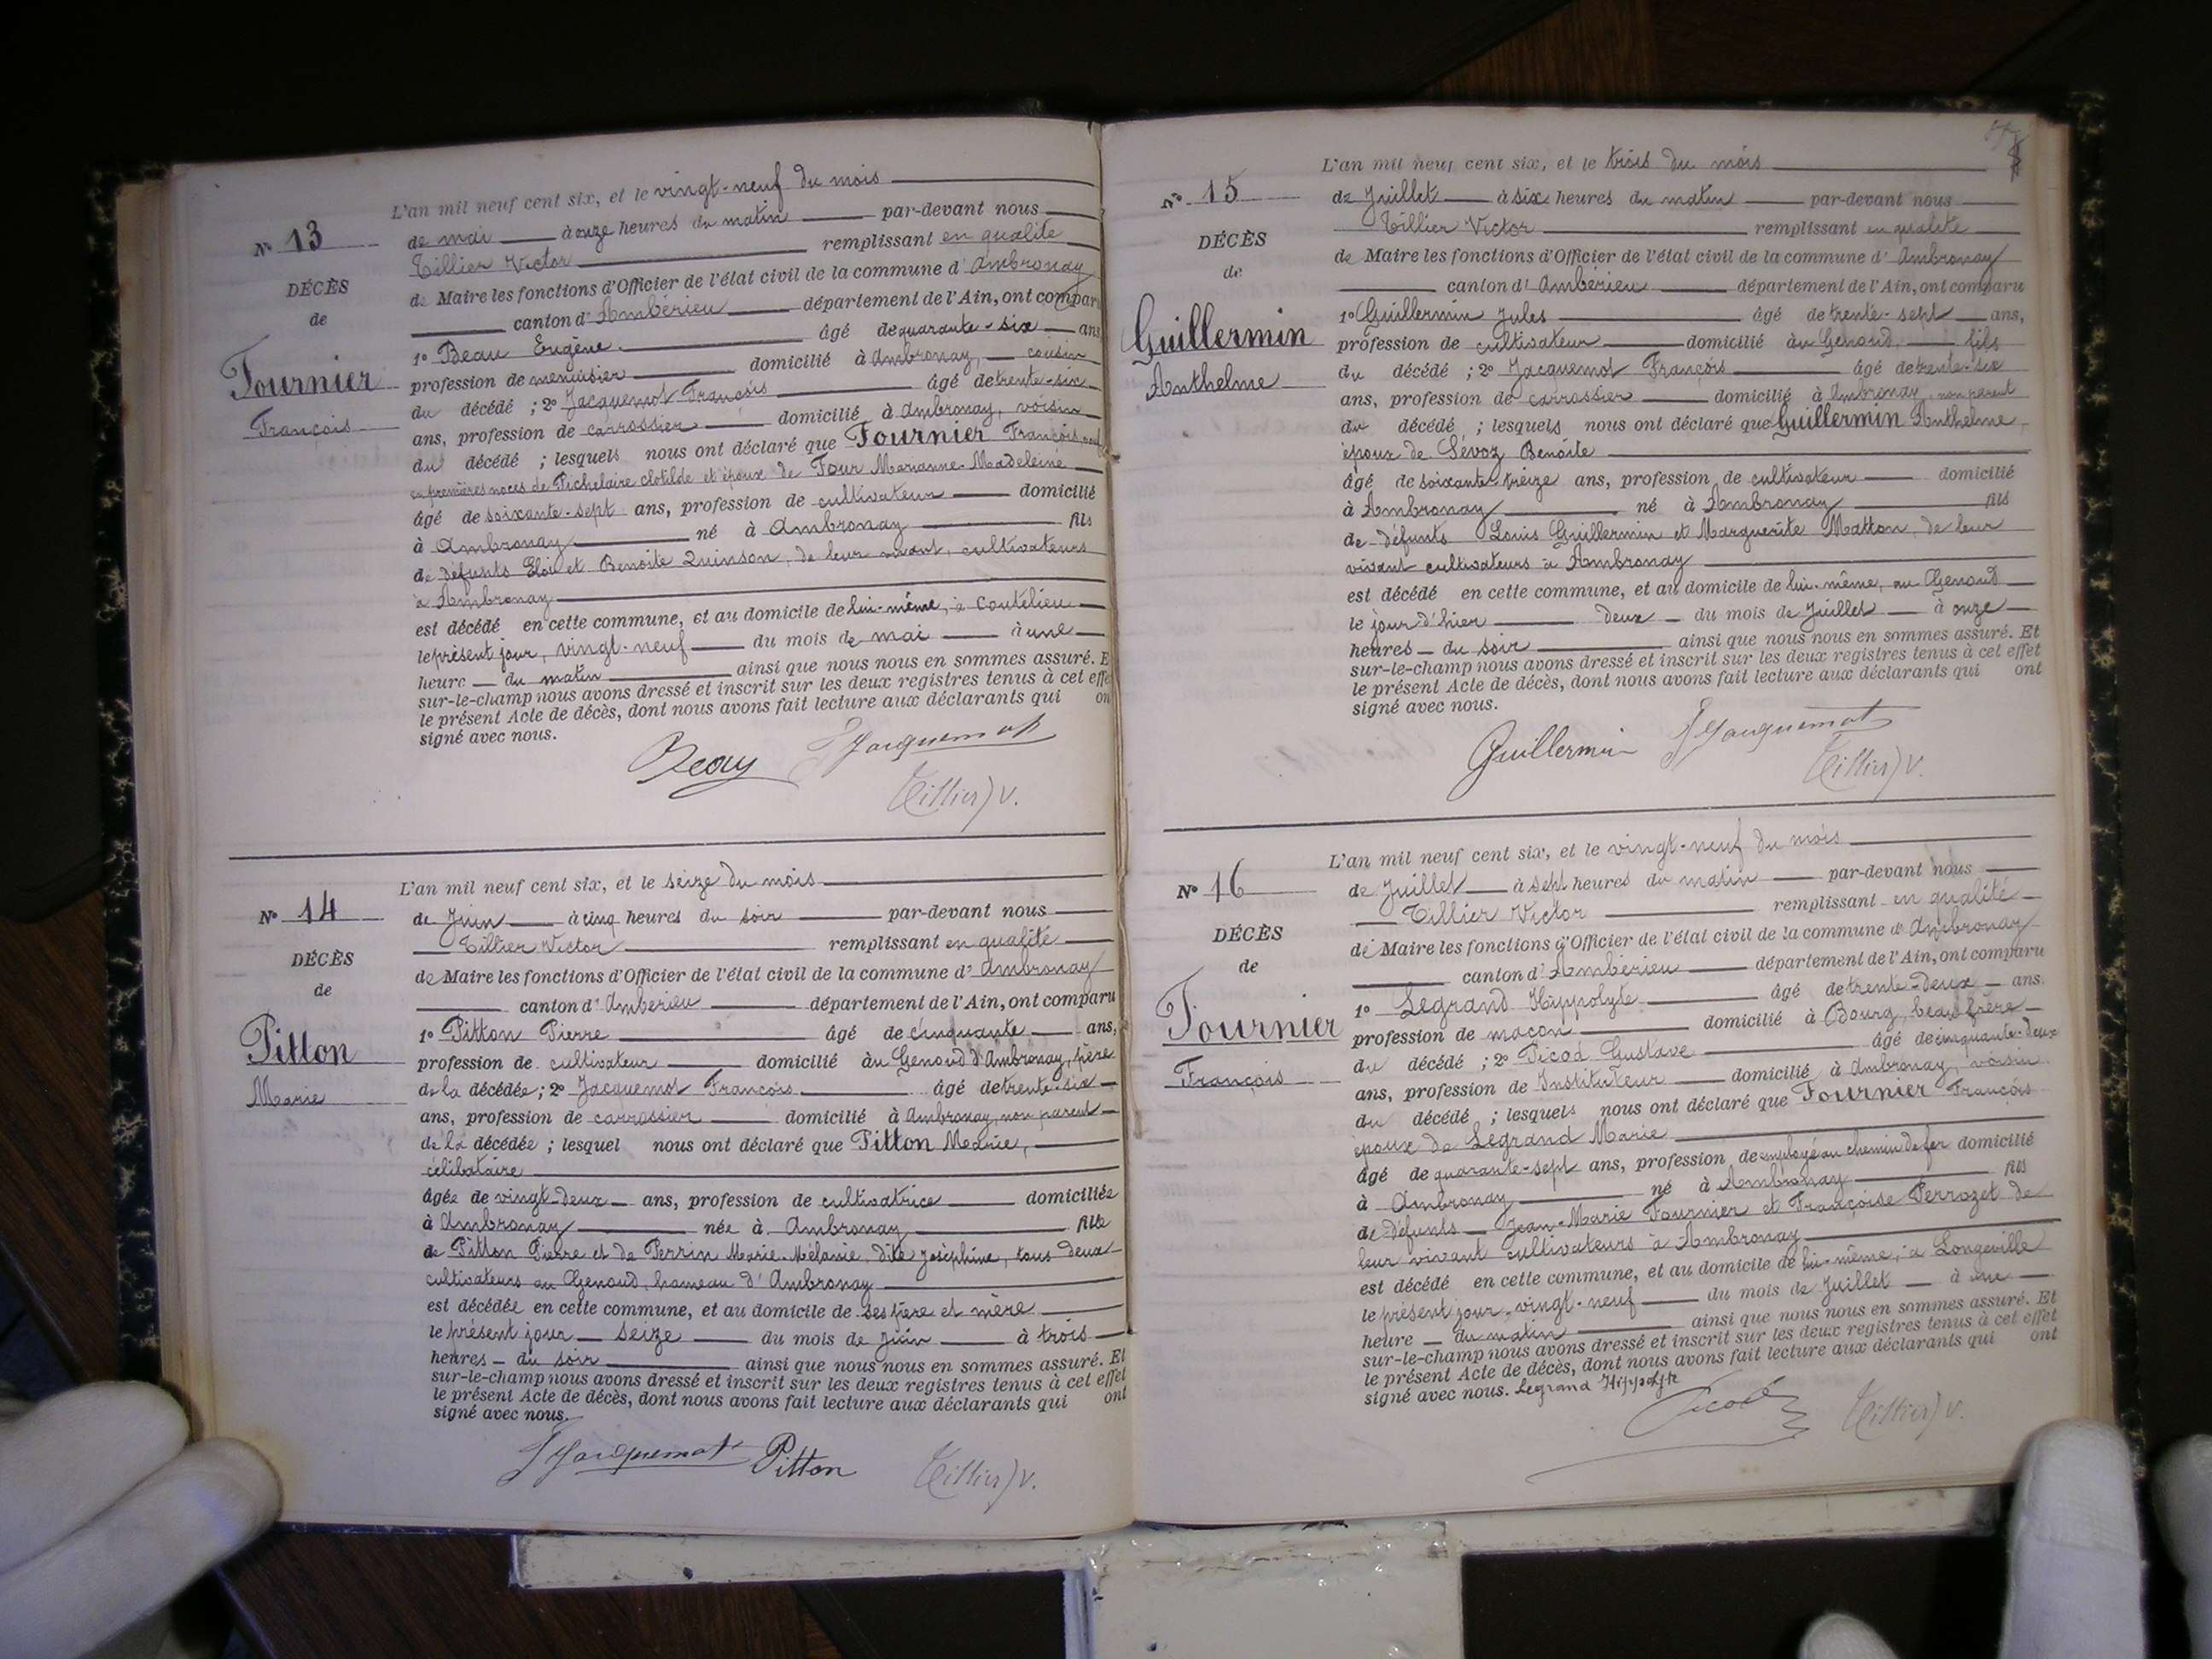 L'an mil neuf cent six, et le vingt-neuf du mois
N° 13
de mai à onze heures du matin par-devant nous
Tillier Victor remplissant en qualité
DÉCÈS
de Maire les fonctions d'Officier de l'état civil de la commune d'Ambronay
de
canton d'Ambérieu département de l'Ain, ont compar
1° Beau Eugène âgé de quarante-six ans
Fournier
profession de menuisier domicilié à Ambronay, cousin
du décédé ; 2° Jacquemot François âgé de trente-six
François
ans, profession de carrossier domicilié à Ambronay, voisin
du décédé ; lesquels nous ont déclaré que Fournier François
en premières noces de Pichelaire Clotilde et époux de Four Marianne-Madeleine
âgé de soixante-sept ans, profession de cultivateur domicilié
à Ambronay né à Ambronay fils
de défunts Eloi et Benoite Quinson, de leur vivant, cultivateurs
à Ambronay
est décédé en cette commune, et au domicile de lui-même, à Coutelieu
le présent jour, vingt-neuf du mois de mai à une
heure du matin ainsi que nous nous en sommes assuré. E
sur-le-champ nous avons dressé et inscrit sur les deux registres tenus à cet effe
le présent Acte de décès, dont nous avons fait lecture aux déclarants qui on
signé avec nous.
Beau Jacquemot
Tillier V.
L'an mil neuf cent six, et le seize du mois
N° 14
de Juin à cinq heures du soir par-devant nous
Tillier Victor remplissant en qualité
DÉCÈS
de Maire les fonctions d'Officier de l'état civil de la commune d'Ambronay
de
canton d'Ambérieu département de l'Ain, ont comparu
1° Pitton Pierre âgé de cinquante ans,
Pitton
profession de cultivateur domicilié au Genoud d'Ambronay, père
de la décédée ; 2° Jacquemot François âgé de trente-six
Marie
ans, profession de carrossier domicilié à Ambronay, non parent
de la décédée ; lesquel nous ont déclaré que Pitton Marie,
célibataire
âgée de vingt-deux ans, profession de cultivatrice domiciliée
à Ambronay née à Ambronay fille
de Pitton Pierre et de Perrin Marie-Mélanie dite Joséphine, tous deux
cultivateurs au Genoud, hameau d'Ambronay
est décédée en cette commune, et au domicile de ses père et mère
le présent jour seize du mois de Juin à trois
heures du soir ainsi que nous nous en sommes assuré. Et
sur-le-champ nous avons dressé et inscrit sur les deux registres tenus à cet effet
le présent Acte de décès, dont nous avons fait lecture aux déclarants qui ont
signé avec nous.
Jacquemot Pitton Tillier V.
L'an mil neuf cent six, et le trois du mois
N° 15
de Juillet à six heures du matin par-devant nous
Tillier Victor remplissant en qualité
DÉCÈS
de Maire les fonctions d'Officier de l'état civil de la commune d'Ambronay
de
canton d'Ambérieu département de l'Ain, ont comparu
1° Guillermin Jules âgé de trente-sept ans,
Guillermin
profession de cultivateur domicilié au Genoud, fils
du décédé ; 2° Jacquemot François âgé de trente-six
Anthelme
ans, profession de carrossier domicilié à Ambronay, non parent
du décédé ; lesquels nous ont déclaré que Guillermin Anthelme,
époux de Sévoz Benoite
âgé de soixante-treize ans, profession de cultivateur domicilié
à Ambronay né à Ambronay fils
de défunts Louis Guillermin et Marguerite Matton, de leur
vivant cultivateurs à Ambronay
est décédé en cette commune, et au domicile de lui-même, au Genoud
le jour d'hier deux du mois de Juillet à onze
heures du soir ainsi que nous nous en sommes assuré. Et
sur-le-champ nous avons dressé et inscrit sur les deux registres tenus à cet effet
le présent Acte de décès, dont nous avons fait lecture aux déclarants qui ont
signé avec nous.
Guillermin Jacquemot
Tillier V.
L'an mil neuf cent six, et le vingt-neuf du mois
N° 16
de Juillet à sept heures du matin par-devant nous
Tillier Victor remplissant en qualité
DÉCÈS
de Maire les fonctions d'Officier de l'état civil de la commune d'Ambronay
de
canton d'Ambérieu département de l'Ain, ont comparu
1° Legrand Hippolyte âgé de trente-deux ans.
Fournier
profession de maçon domicilié à Bourg, beau frère
du décédé ; 2° Picod Gustave âgé de cinquante-deux
François
ans, profession de Instituteur domicilié à Ambronay, voisin
du décédé ; lesquels nous ont déclaré que Fournier François
époux de Legrand Marie
âgé de quarante-sept ans, profession de employé au chemin de fer domicilié
à Ambronay né à Ambronay fils
de défunts Jean-Marie Fournier et Françoise Perrozet de
leur vivant cultivateurs à Ambronay
est décédé en cette commune, et au domicile de lui-même, à Longeville
le présent jour vingt-neuf du mois de Juillet à une
heure du matin ainsi que nous nous en sommes assuré. Et
sur-le-champ nous avons dressé et inscrit sur les deux registres tenus à cet effet
le présent Acte de décès, dont nous avons fait lecture aux déclarants qui ont
signé avec nous. Legrand Hippolyte
Picod Tillier V.